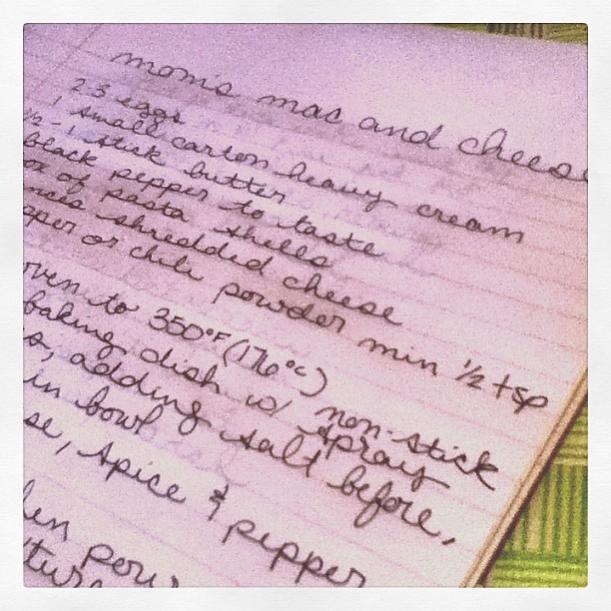 mom's mac and cheese
2-3 eggs
1 small carton heavy cream
½-1 stick butter
black pepper to taste
of pasta shells
shredded cheese
or chili powder min ½ tsp
oven to 350°F (176°C)
baking dish w/ non-stick spray
adding salt before,
in bowl
spice & pepper
pour